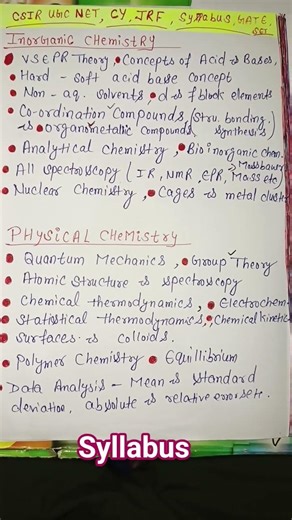 CSIR UGC NET, CY, JRF, Syllabus, GATE, SET
INORGANIC CHEMISTRY
VSEPR Theory, Concepts of Acid & Bases,
Hard - Soft acid base concept
Non - aq. Solvents, d & f block elements
Co-ordination Compounds, (Stru. bonding.
& Organometallic Compounds synthesis)
Analytical Chemistry, Bioinorganic chem
All spectroscopy (IR, NMR, EPR, Mass etc)
Mossbauer
Nuclear Chemistry, Cages & metal cluste
PHYSICAL CHEMISTRY
Quantum Mechanics, Group Theory
Atomic Structure & spectroscopy
Chemical thermodynamics, Electrochem
Statistical thermodynamics, Chemical kinetic
Surfaces & colloids.
Polymer Chemistry Equillibrium
Data Analysis - Mean & standard
deviation, absolute & relative error etc.
Syllabus